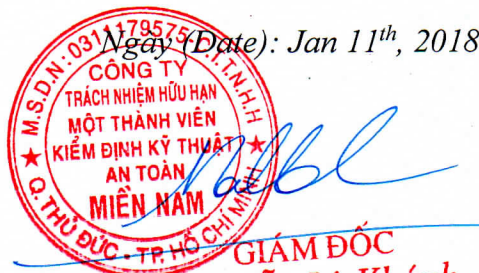 Ngày (Date): Jan 11th, 2018
M.S.D.N: 0311179575-C.T.T.N.H.H
CÔNG TY
TRÁCH NHIỆM HỮU HẠN
MỘT THÀNH VIÊN
KIỂM ĐỊNH KỸ THUẬT
AN TOÀN
MIỀN NAM
Q. THỦ ĐỨC - TP. HỒ CHÍ MINH
GIÁM ĐỐC